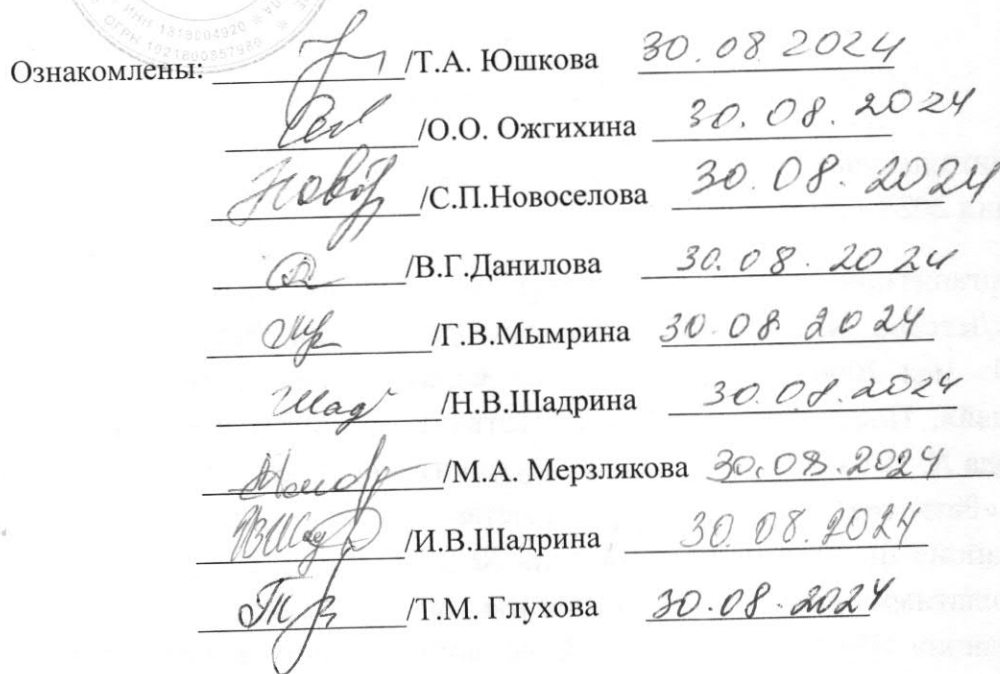 ИНН 1818004920
ОГРН 1021800857980
Ознакомлены: /Т.А. Юшкова 30.08 2024
/О.О. Ожгихина 30.08.2024
/С.П.Новоселова 30.08.2024
/В.Г.Данилова 30.08.2024
/Г.В.Мымрина 30.08 2024
/Н.В.Шадрина 30.08.2024
/М.А. Мерзлякова 30.08.2024
/И.В.Шадрина 30.08.2024
/Т.М. Глухова 30.08.2024